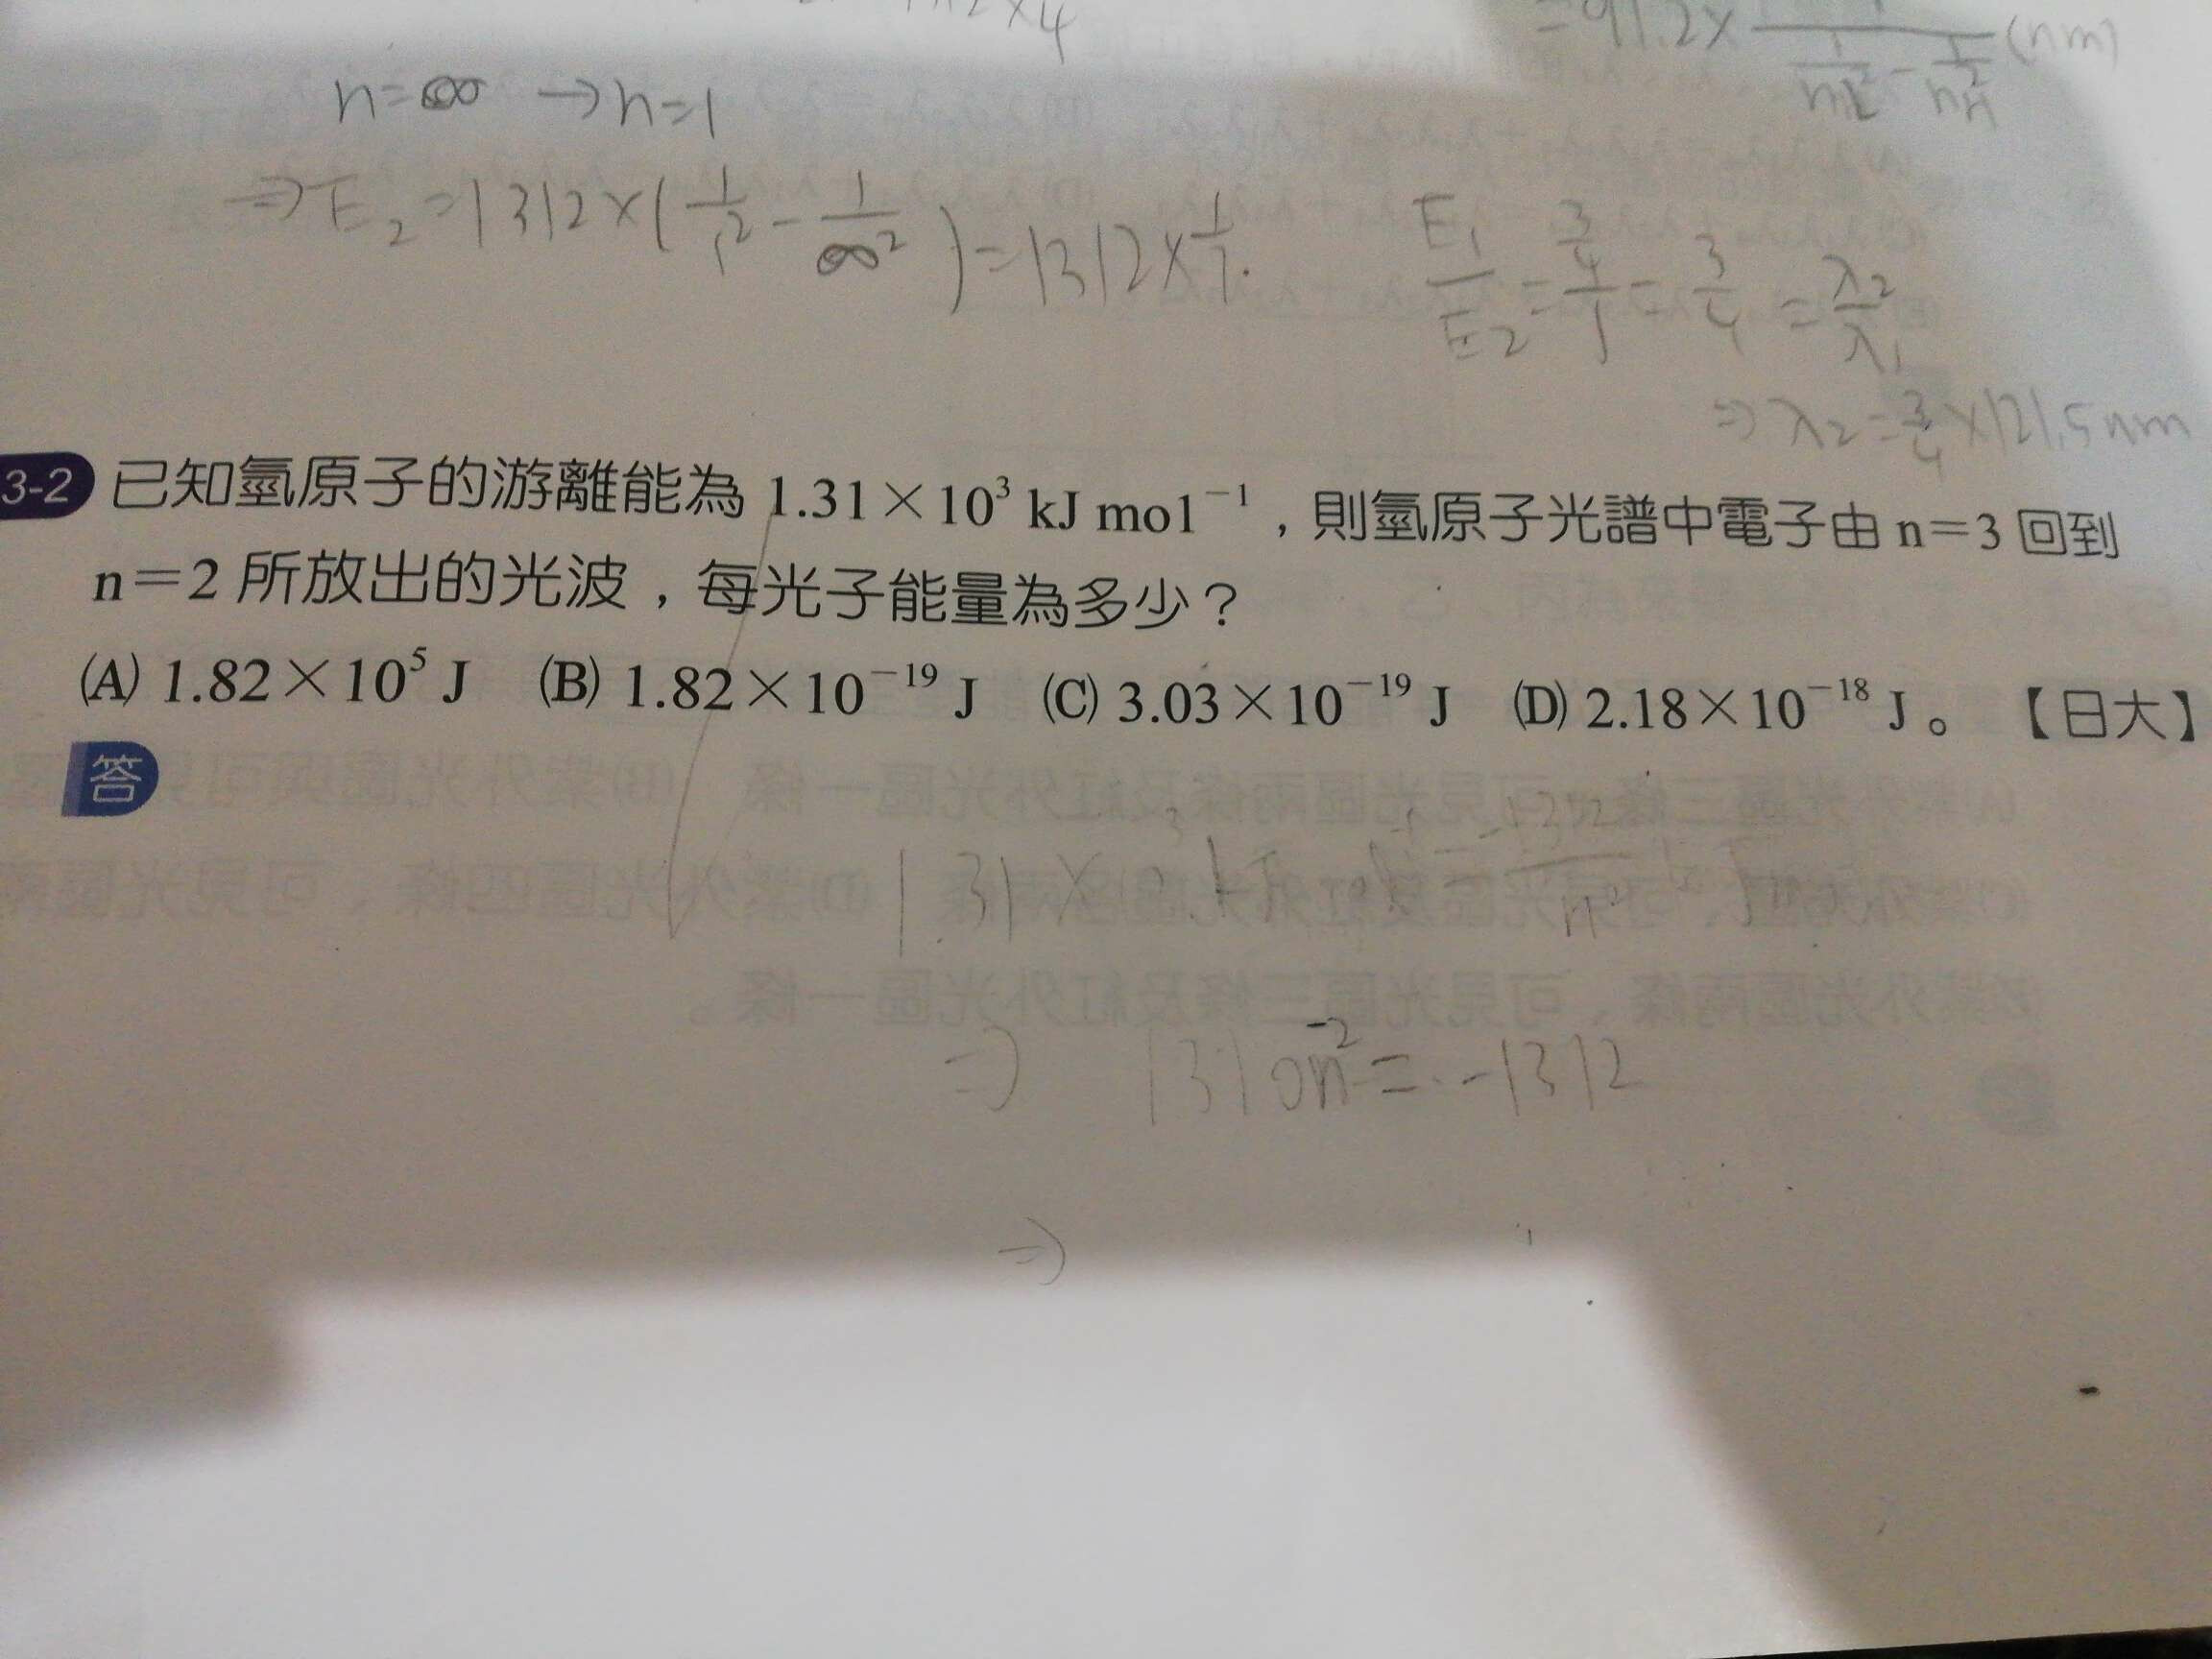 =91.2×
(nm)
n=∞ →n=1
⇒E₂=1312×(1/1²-1/∞²)=1312×1/1.
E₁/E₂=(3/4)/1=3/4=λ₂/λ₁
⇒λ₂=3/4×121.5nm
3-2 已知氫原子的游離能為 1.31×10³ kJ mol⁻¹，則氫原子光譜中電子由 n=3 回到
n=2 所放出的光波，每光子能量為多少？
(A) 1.82×10⁵ J (B) 1.82×10⁻¹⁹ J (C) 3.03×10⁻¹⁹ J (D) 2.18×10⁻¹⁸ J。 【日大】
答
⇒ 1310n²=-1312
⇒